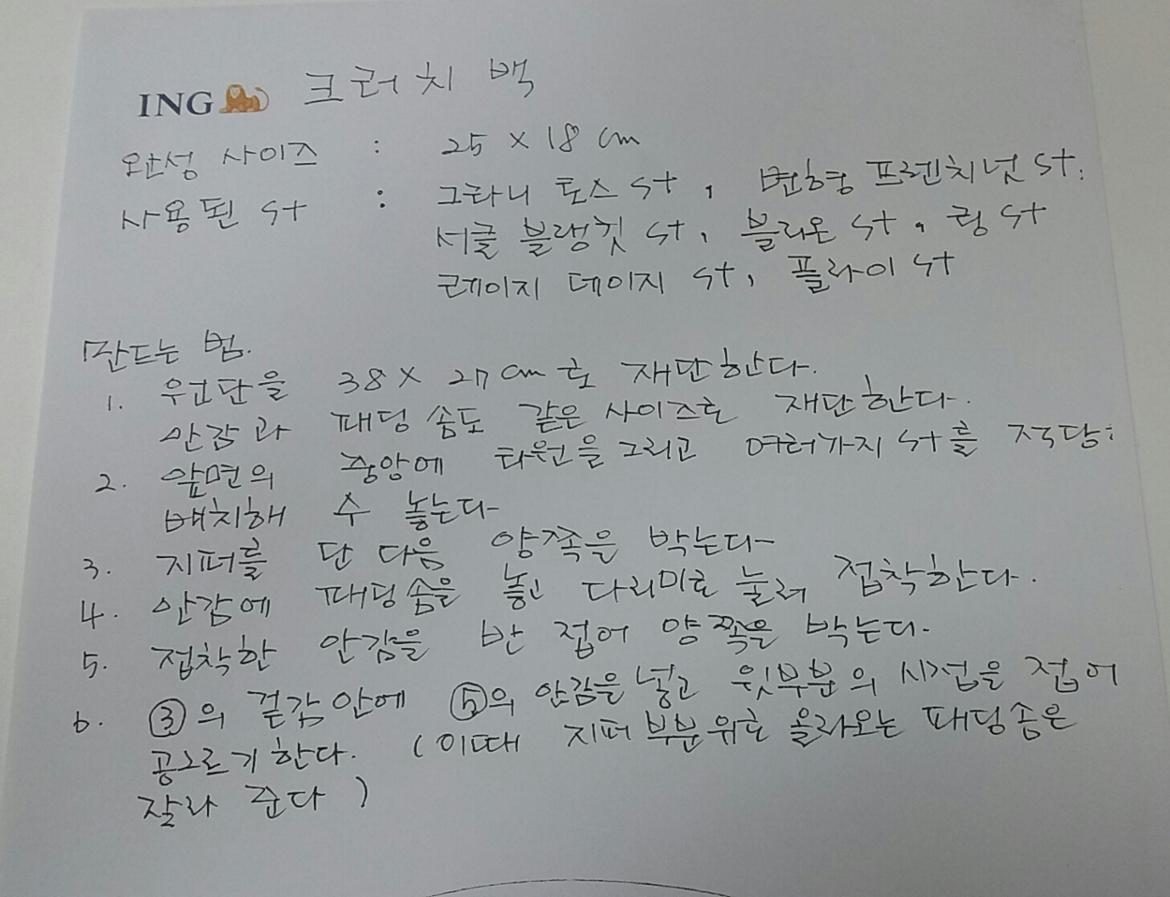 ING 크러치 백
완성 사이즈 : 25 × 18 cm
사용된 st : 그라니 토스 st, 변형 프렌치넛 st.
서클 블랭킷 st, 블리온 st, 링 st
레이지 데이지 st, 플라이 st
만드는 법.
1. 원단을 38 × 27 cm로 재단한다.
안감과 패딩솜도 같은 사이즈로 재단한다.
2. 앞면의 중앙에 타원을 그리고 여러가지 st를 적당
배치해 수 놓는다-
3. 지퍼를 단 다음 양쪽은 박는다-
4. 안감에 패딩솜을 놓고 다리미로 눌려 접착한다.
5. 접착한 안감을 반 접어 양쪽을 박는다.
6. ③의 겉감 안에 ⑤의 안감을 넣고 윗부분의 시접을 접어
공그르기 한다. (이때 지퍼 부분위로 올라오는 패딩솜은
잘라 준다)